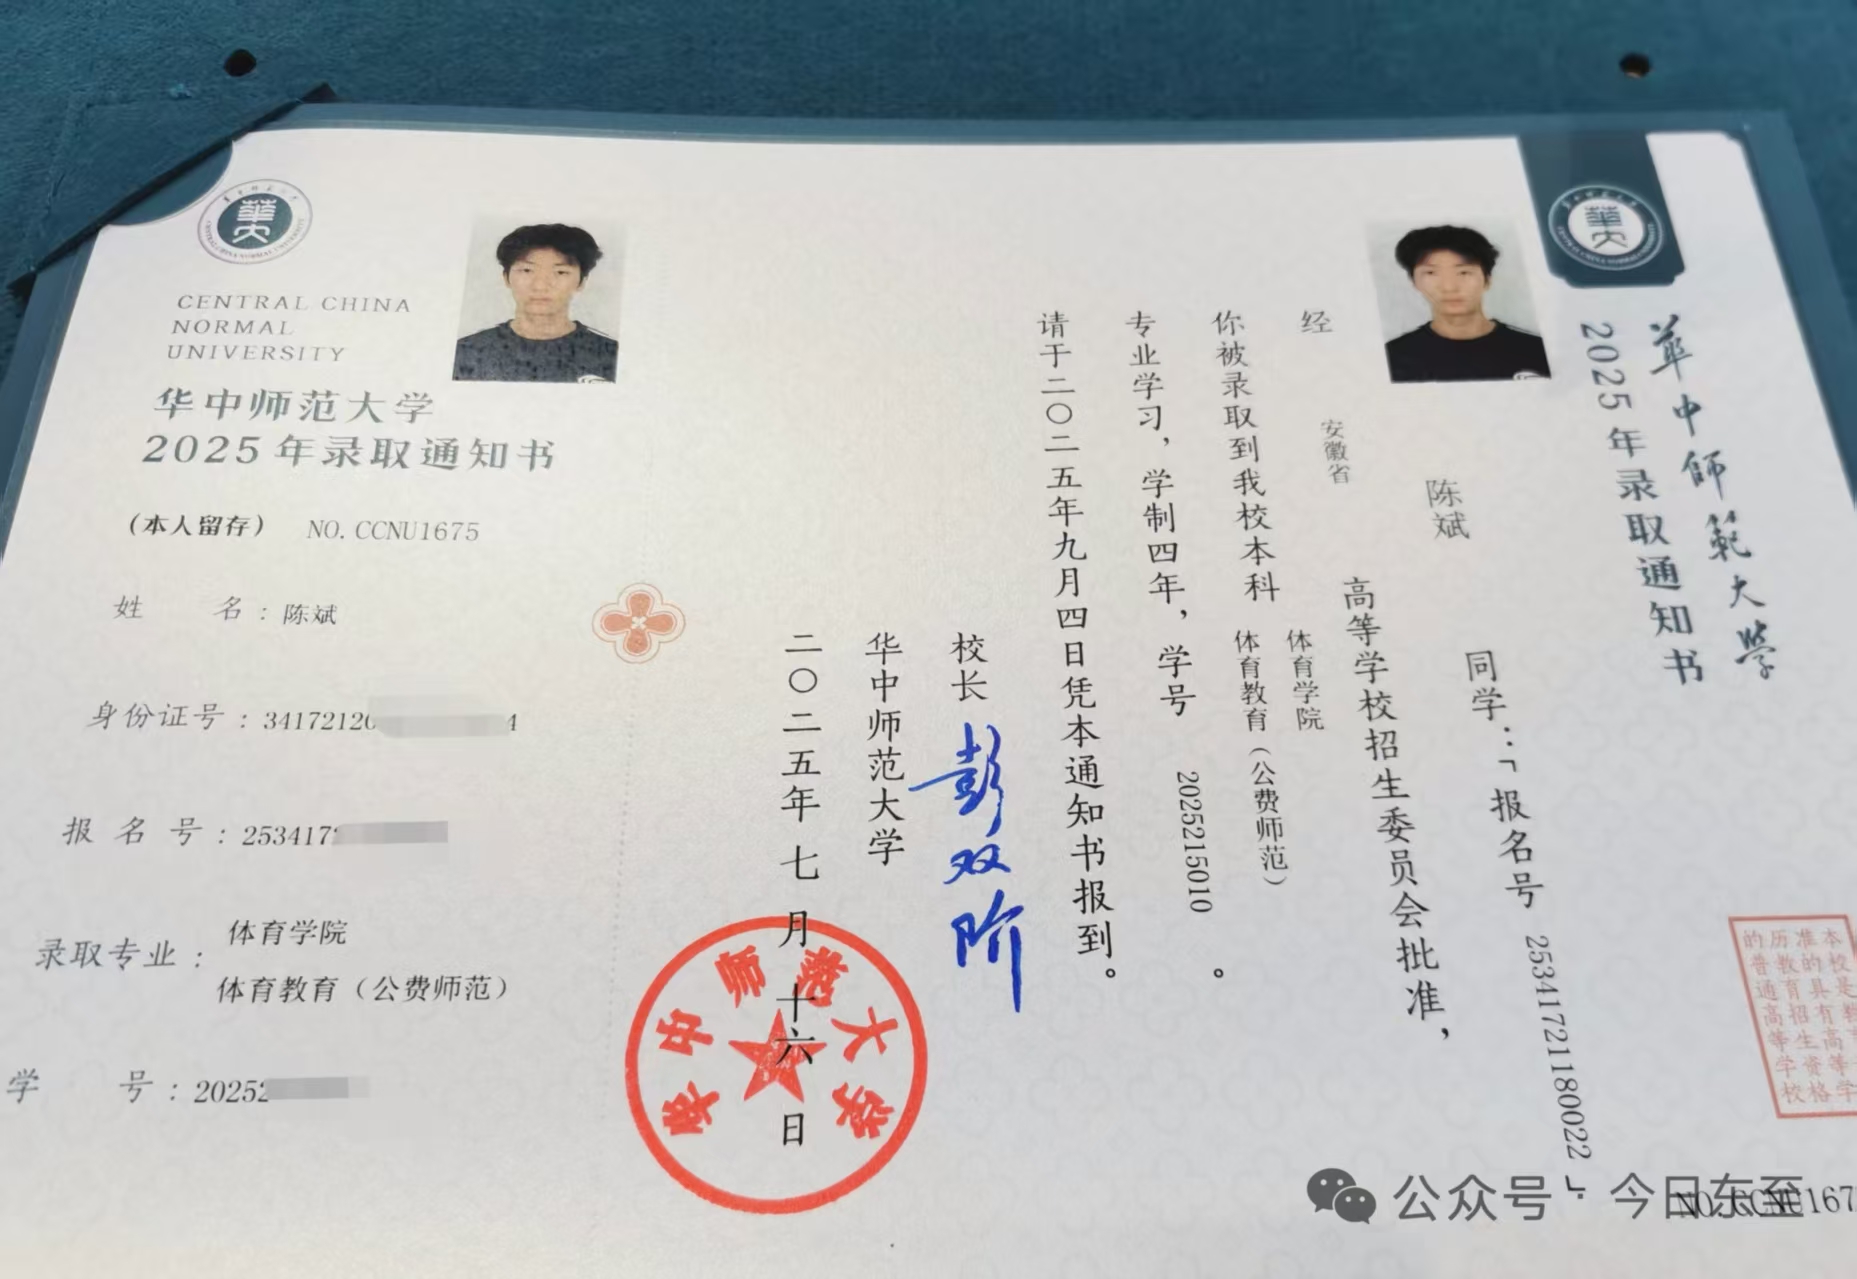 CENTRAL CHINA
NORMAL
UNIVERSITY
华中师范大学
2025年录取通知书
(本人留存) NO.CCNU1675
姓 名：陈斌
身份证号：34172120 4
报名号：2534172
录取专业：体育学院
体育教育（公费师范）
学 号：20252
華中師範大學
2025年录取通知书
陈斌 同学：「报名号 25341721180022」
经 安徽省 高等学校招生委员会批准，
你被录取到我校本科 体育学院
体育教育（公费师范）
专业学习，学制四年，学号 2025215010 。
请于二〇二五年九月四日凭本通知书报到。
校长 彭双阶
华中师范大学
二〇二五年七月十六日
华中师范大学
本校是
准的具有
历教育招生
的普通高等学校
公众号 · 今日东至
NO.CCNU167